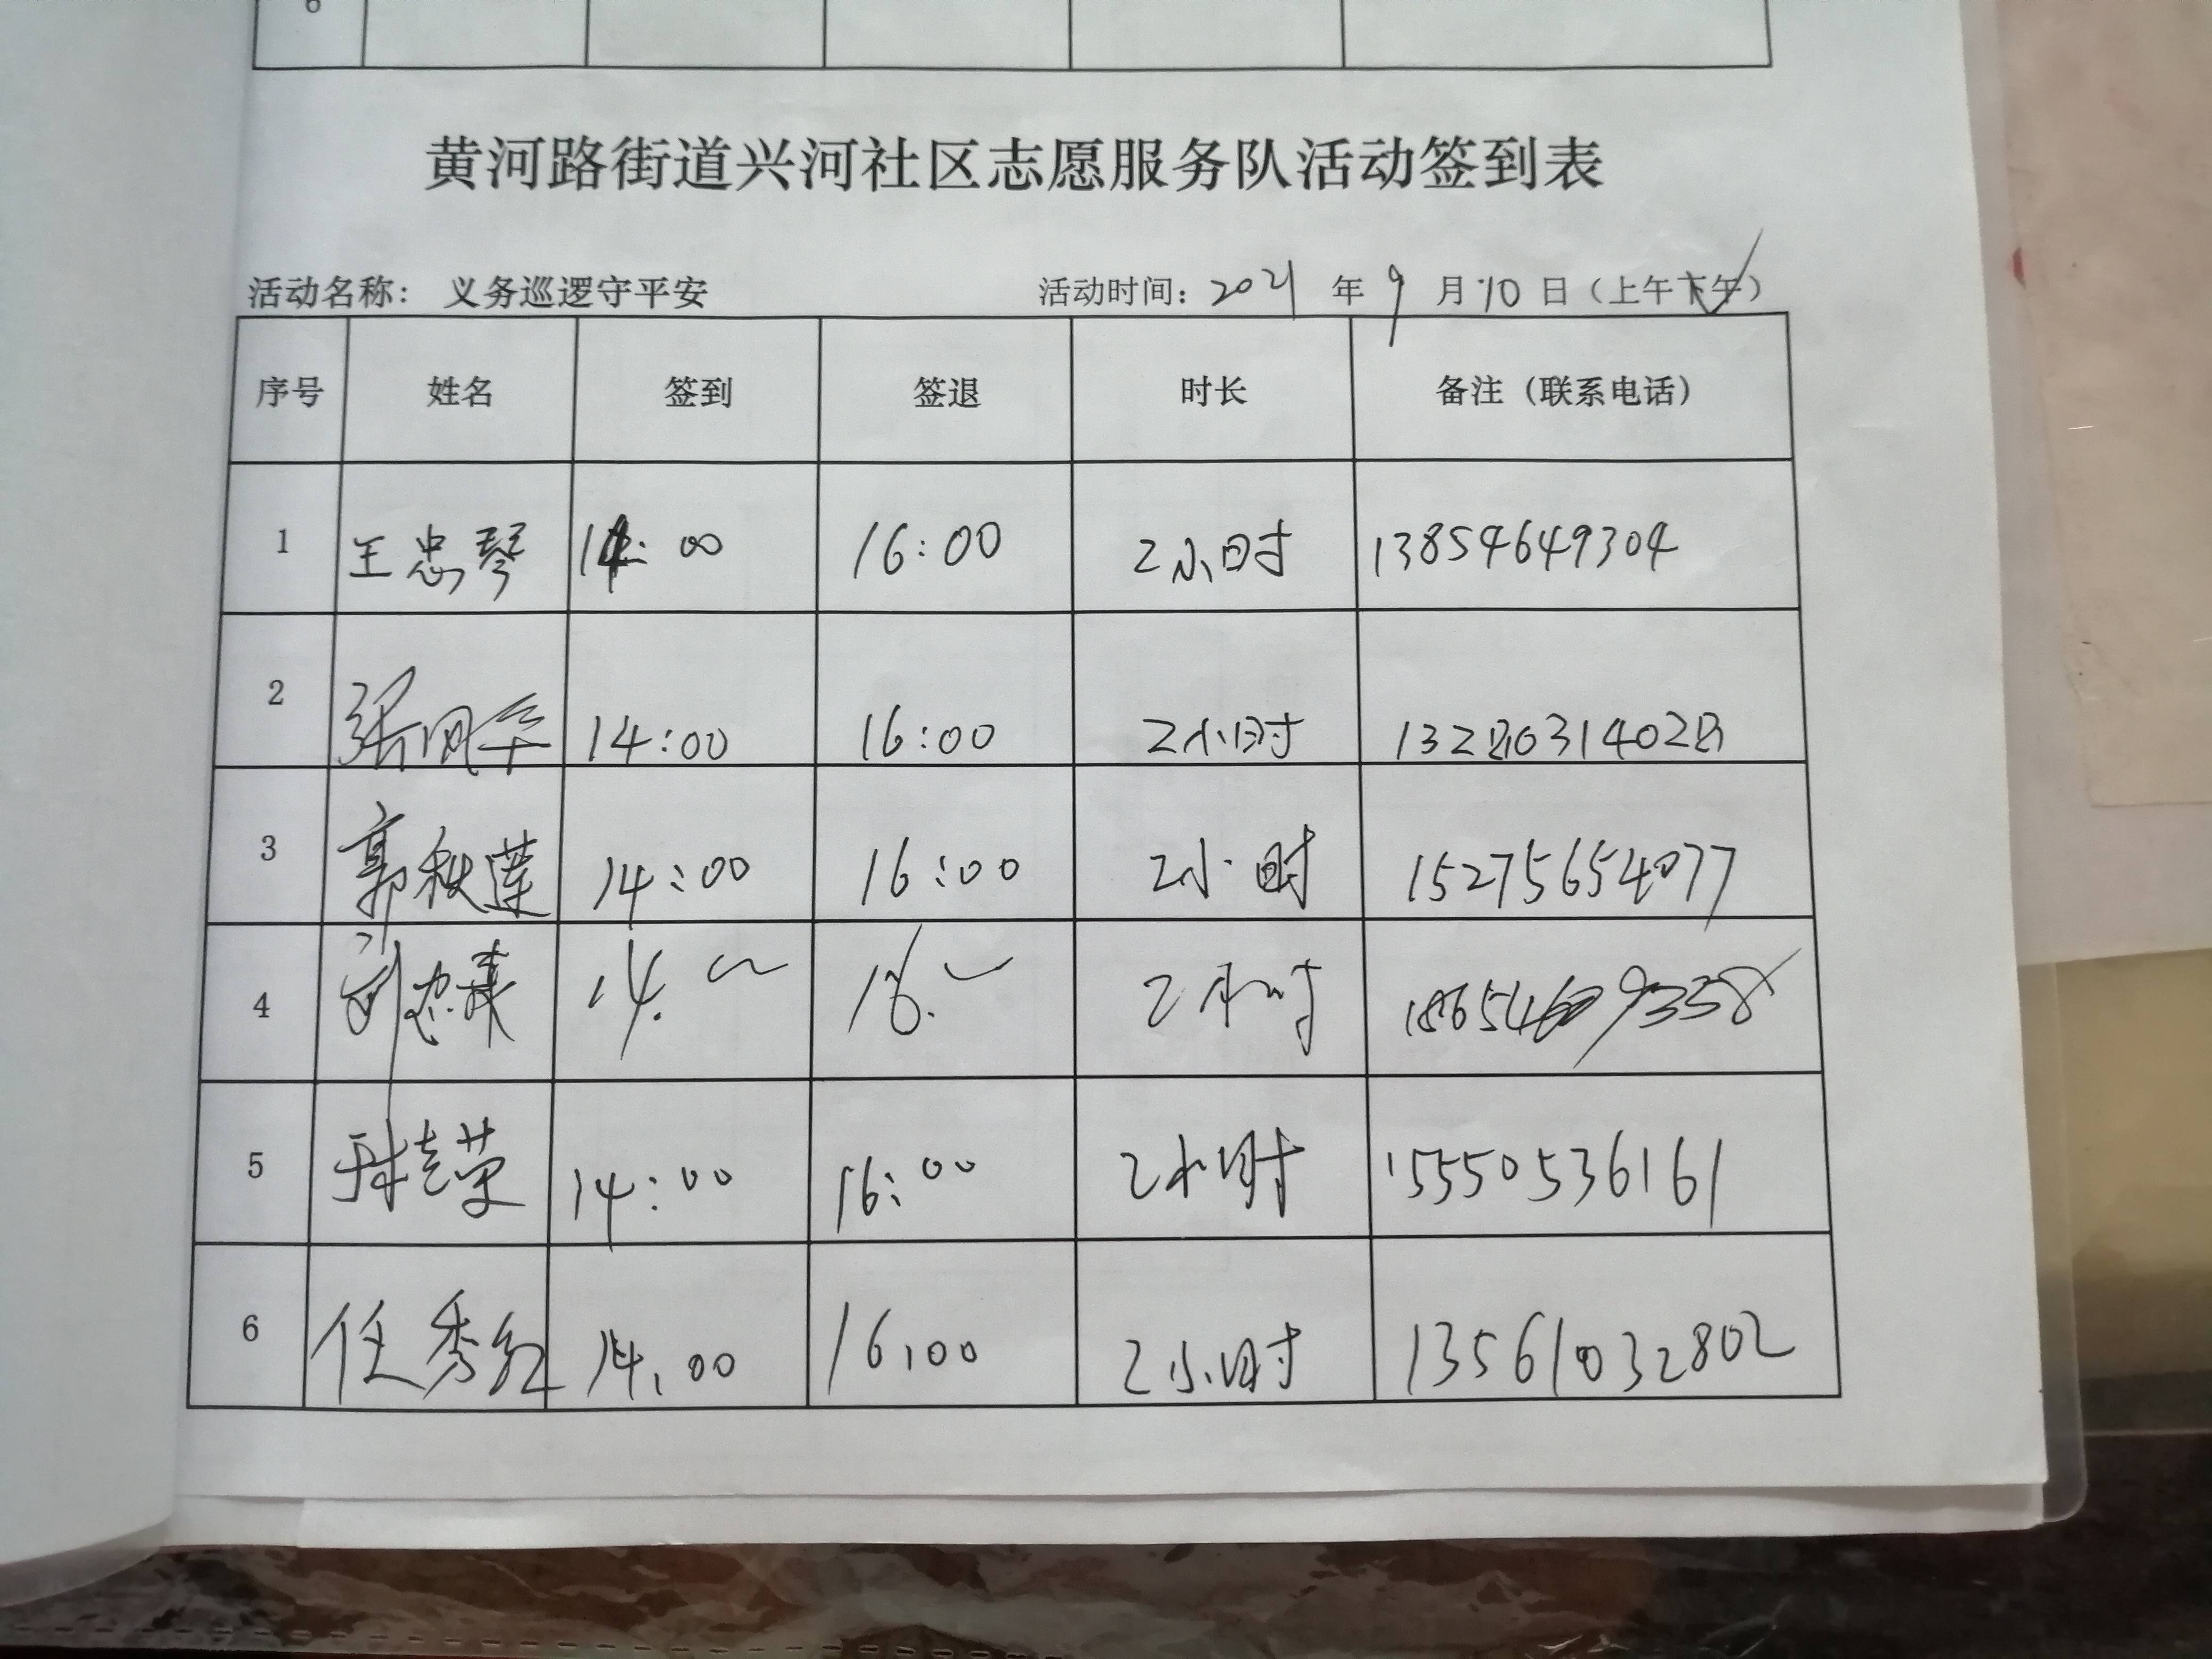 6
黄河路街道兴河社区志愿服务队活动签到表
活动名称： 义务巡逻守平安 活动时间：2021 年 9 月 10 日（上午下午）
序号 姓名 签到 签退 时长 备注（联系电话）
1 王忠琴 14:00 16:00 2小时 13854649304
2 张凤华 14:00 16:00 2小时 13280314028
3 郭秋莲 14:00 16:00 2小时 15275654077
4 14. 16. 2小时
5 14:00 16:00 2小时 15550536161
6 任秀红 14.00 16.00 2小时 13561032802